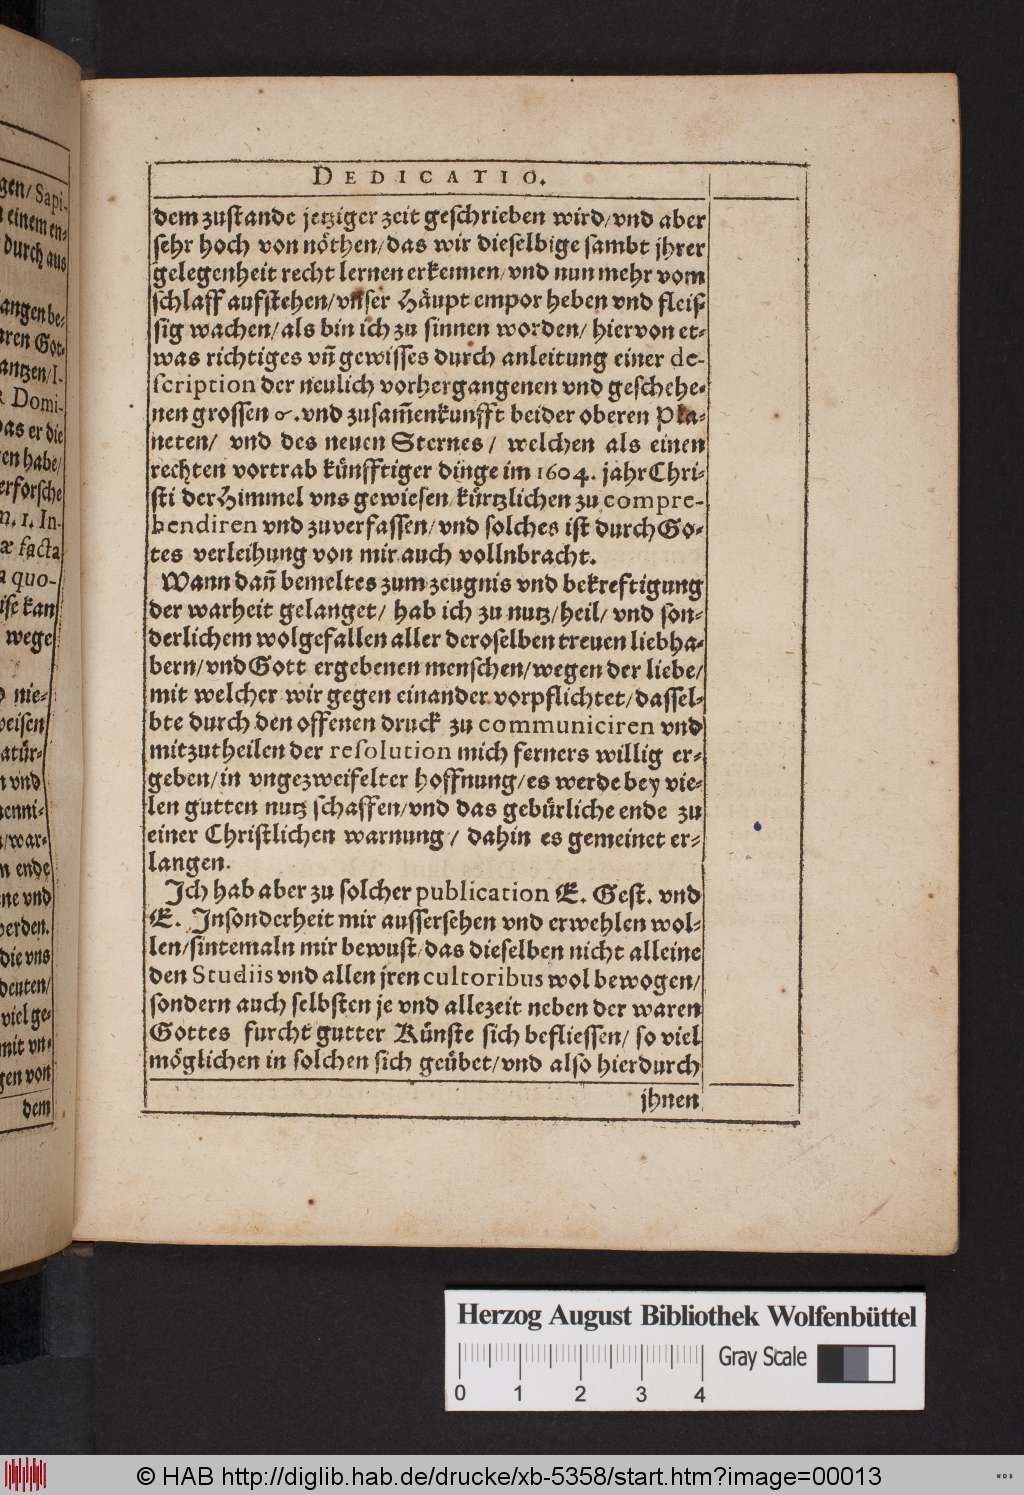 DEDICATIO.
dem zustande jetziger zeit geschrieben wird/ vnd aber
sehr hoch von nöthen/ das wir dieselbige sambt jhrer
gelegenheit recht lernen erkennen/ vnd nun mehr vom
schlaff aufstehen/ vnser Häupt empor heben vnd fleis-
sig wachen/ als bin ich zu sinnen worden/ hiervon et-
was richtiges vñ gewisses durch anleitung einer de-
scription der neulich vorhergangenen vnd geschehe-
nen grossen ☌. vnd zusam̃enkunfft beider oberen Pla-
neten/ vnd des neuen Sternes/ welchen als einen
rechten vortrab künfftiger dinge im 1604. jahr Chri-
sti der Himmel vns gewiesen/ kürtzlichen zu compre-
hendiren vnd zuverfassen/ vnd solches ist durch Go-
tes verleihung von mir auch vollnbracht.
Wann dañ bemeltes zum zeugnis vnd bekreftigung
der warheit gelanget/ hab ich zu nutz/ heil/ vnd son-
derlichem wolgefallen aller deroselben treuen liebha-
bern/ vnd Gott ergebenen menschen/ wegen der liebe/
mit welcher wir gegen einander vorpflichtet/ dassel-
bte durch den offenen druck zu communiciren vnd
mitzutheilen der resolution mich ferners willig er-
geben/ in vngezweifelter hoffnung/ es werde bey vie-
len gutten nutz schaffen/ vnd das gebürliche ende zu
einer Christlichen warnung/ dahin es gemeinet er-
langen.
Ich hab aber zu solcher publication E. Gest. vnd
E. Insonderheit mir aussersehen vnd erwehlen wol-
len/ sintemaln mir bewust/ das dieselben nicht alleine
den Studiis vnd allen jren cultoribus wol bewogen/
sondern auch selbsten je vnd allezeit neben der waren
Gottes furcht gutter Künste sich befliessen/ so viel
möglichen in solchen sich geübet/ vnd also hierdurch
jhnen
gen/ Sapi-
einem en-
durch aus
angen be-
aren Got-
antzen/ I-
Domi-
das er die
en habe/
erforsche
1. In-
facta
quo-
ise kan
wege
nie-
weisen
atür-
vnd
enni-
/ war-
ende
ne vnd
werden.
die vns
deuten/
viel ge-
mit vn-
gen von
dem
Herzog August Bibliothek Wolfenbüttel
0 1 2 3 4
Gray Scale
© HAB http://diglib.hab.de/drucke/xb-5358/start.htm?image=00013